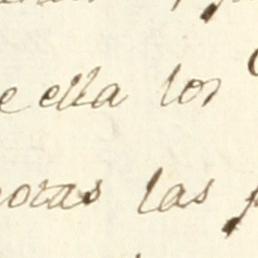 e ella los
oras las